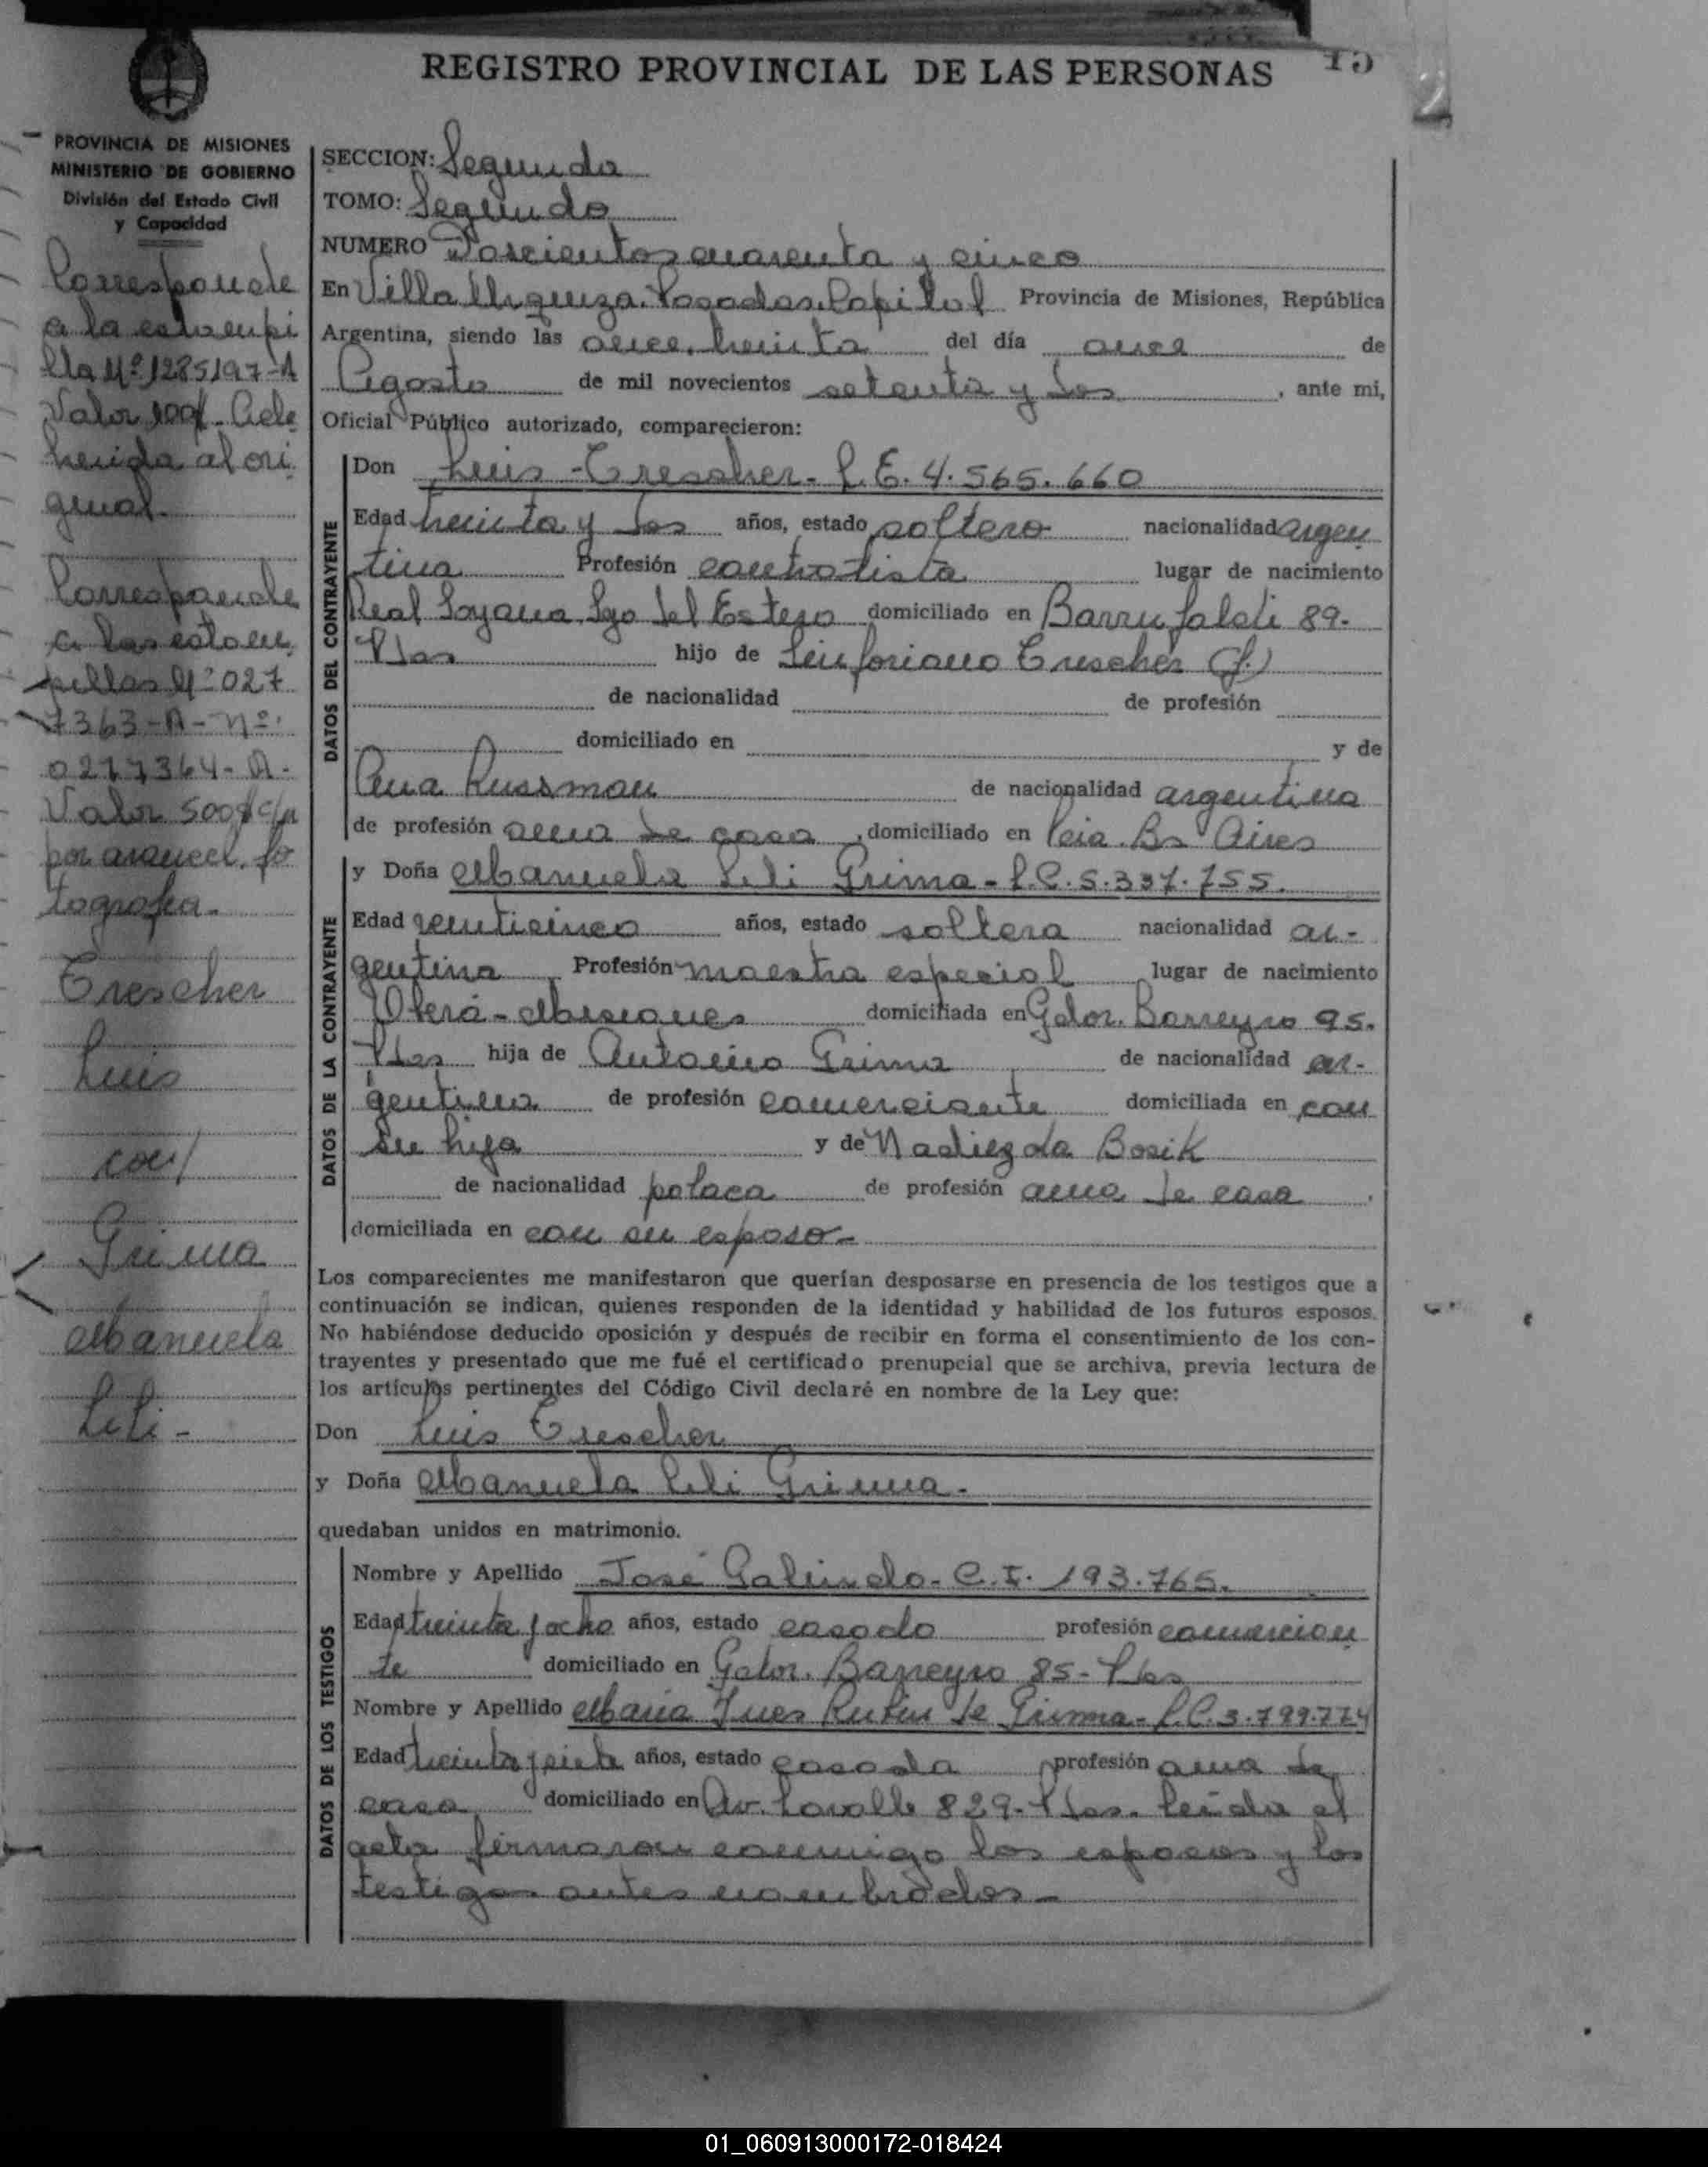 REGISTRO PROVINCIAL DE LAS PERSONAS
15
PROVINCIA DE MISIONES
MINISTERIO DE GOBIERNO
División del Estado Civil
y Capacidad
Corresponde
a la estampi
lla Nº 1285197-A
Valor 100$. Adhe
herida al ori
ginal.
Corresponde
a las estam
pillas Nº 027
7363-A-Nº
0277364-A-
Valor 500$ c/u
por arancel fo
tografia.
Trescher
Luis
con/
Grima
Manuela
Lili-
SECCION: Segunda
TOMO: Segundo
NUMERO Doscientos cuarenta y cinco
En Villa Urquiza. Posadas. Capital Provincia de Misiones, República
Argentina, siendo las once, treinta del día once de
Agosto de mil novecientos setenta y dos, ante mi,
Oficial Público autorizado, comparecieron:
DATOS DEL CONTRAYENTE
Don Luis - Trescher - L.E. 4.565.660
Edad treinta y dos años, estado soltero nacionalidad argen
tina Profesión contratista lugar de nacimiento
Real Sayana, Sgo del Estero domiciliado en Barrufaldi 89.
Pdas hijo de Sinforiano Trescher (f.)
de nacionalidad de profesión
domiciliado en y de
Ana Russman de nacionalidad argentina
de profesión ama de casa, domiciliado en Pcia. Bs Aires
DATOS DE LA CONTRAYENTE
y Doña Manuela Lili Grima - L.C. 5.337.755.
Edad veinticinco años, estado soltera nacionalidad ar-
gentina Profesión maestra especial lugar de nacimiento
Oberá - Misiones domiciliada en Gdor. Barreyro 95.
Pdas hija de Antonino Grima de nacionalidad ar-
gentina de profesión comerciante domiciliada en con
su hija y de Nadiezda Bosik
de nacionalidad polaca de profesión ama de casa.
domiciliada en con su esposo-
Los comparecientes me manifestaron que querían desposarse en presencia de los testigos que a
continuación se indican, quienes responden de la identidad y habilidad de los futuros esposos.
No habiéndose deducido oposición y después de recibir en forma el consentimiento de los con-
trayentes y presentado que me fué el certificado prenupcial que se archiva, previa lectura de
los artículos pertinentes del Código Civil declaré en nombre de la Ley que:
Don Luis Trescher
y Doña Manuela Lili Grima-
quedaban unidos en matrimonio.
DATOS DE LOS TESTIGOS
Nombre y Apellido José Galindo - C.I. 193.765.
Edad treinta y ocho años, estado casado profesión comercian
te domiciliado en Gdor. Barreyro 85 - Pdas
Nombre y Apellido María Ines Rutin de Grima - L.C. 3.799.774
Edad treinta y siete años, estado casada profesión ama de
casa domiciliado en Av. Lavalle 829 - Pdas. Leida el
acta firmaron conmigo los esposos y los
testigos antes nombrados-
01_060913000172-018424